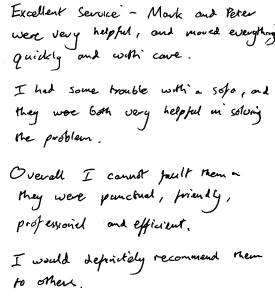 Excellent Service - Mark and Peter
were very helpful, and moved everything
quickly and with care.
I had some trouble with a sofa, and
they were both very helpful in solving
the problem.
Overall I cannot fault them -
they were punctual, friendly,
professional and efficient.
I would definitely recommend them
to others.